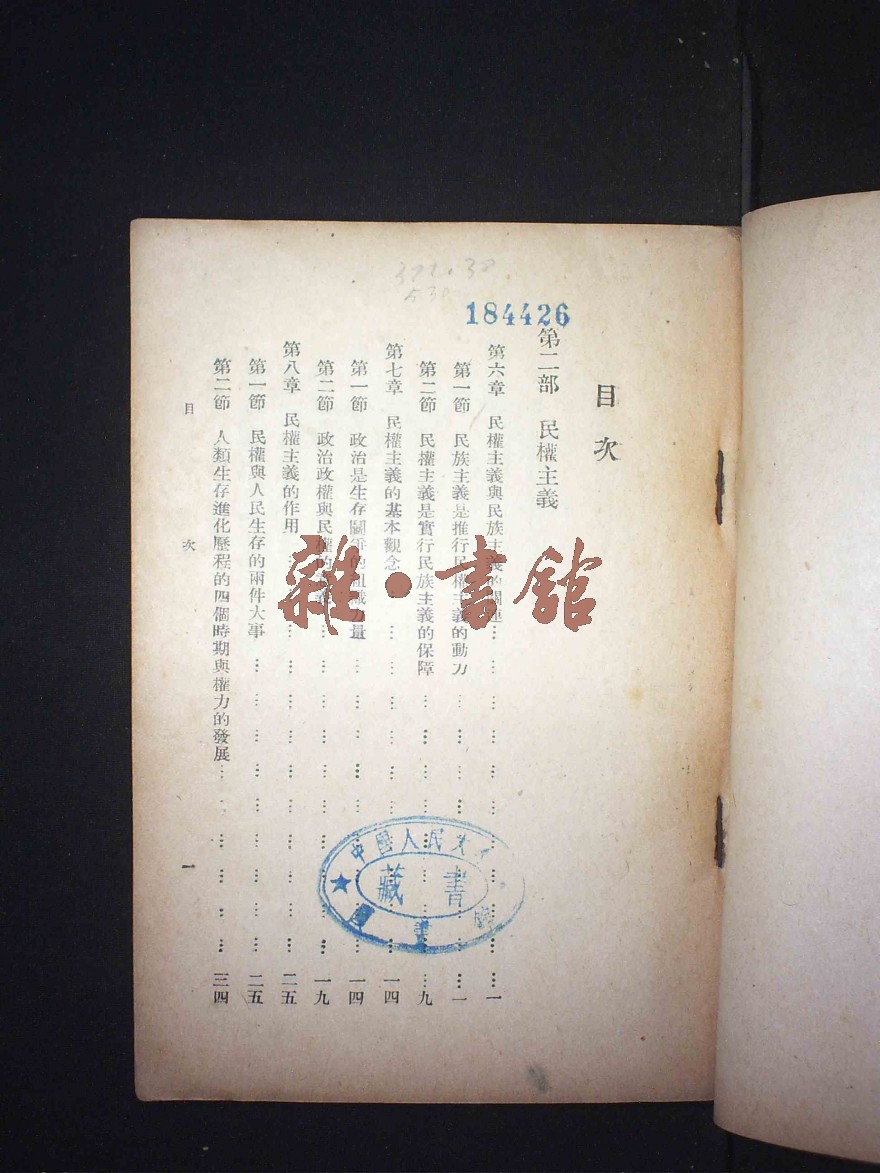 372.38
530
184426
目次
第二部 民權主義
第六章 民權主義與民族主義的關連……………………一
第一節 民族主義是推行民權主義的動力……………………一
第二節 民權主義是實行民族主義的保障……………………九
第七章 民權主義的基本觀念……………………一四
第一節 政治是生存鬭爭的組織力量……………………一四
第二節 政治政權與民權的意義……………………一九
第八章 民權主義的作用……………………二五
第一節 民權與人民生存的兩件大事……………………二五
第二節 人類生存進化歷程的四個時期與權力的發展……………………三四
目次 一
雜·書館
中國人民大
圖書館
藏書